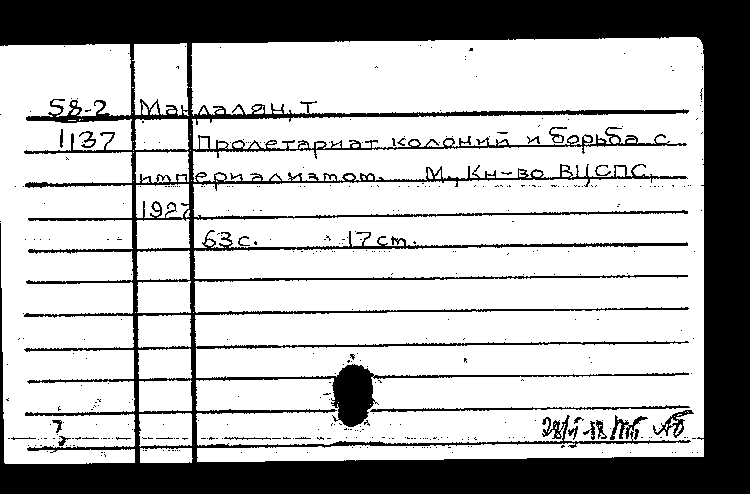 58-2 Мандалян, Т
1137 Пролетариат колоний и борьба с
империализмом. М., Кн-во ВЦСПС,
1927.
63 с. 17 cm.